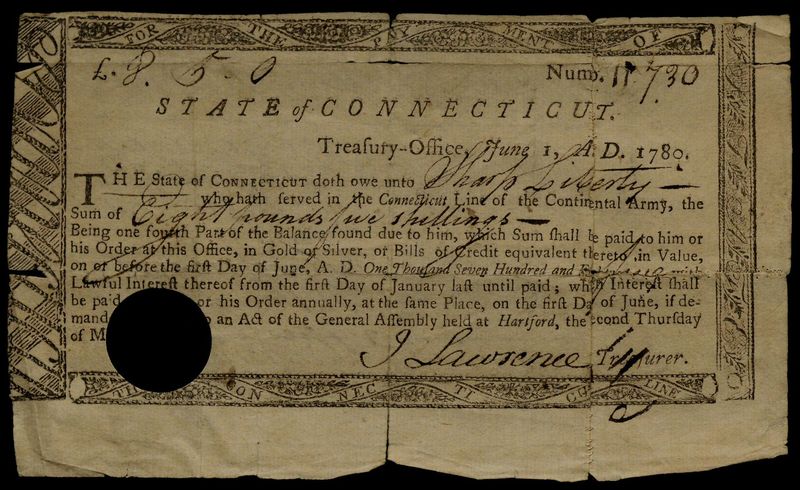 FOR THE PAY MENT OF
£. 8. 5. 0 Numb. 11,730
STATE of CONNECTICUT.
Treaſury-Office, June 1, A. D. 1780.
THE State of CONNECTICUT doth owe unto Sharp Liberty
who hath ſerved in the Connecticut Line of the Continental Army, the
Sum of Eight pounds five shillings
Being one fourth Part of the Balance found due to him, which Sum ſhall be paid to him or
his Order at this Office, in Gold or Silver, or Bills of Credit equivalent thereto in Value,
on or before the firſt Day of June, A. D. One Thouſand Seven Hundred and with
Lawful Intereſt thereof from the firſt Day of January laſt until paid; which Intereſt ſhall
be paid or his Order annually, at the ſame Place, on the firſt Day of June, if de-
mand an Act of the General Aſſembly held at Hartford, the ſecond Thurſday
of M
J Lawrence Treaſurer.
TH CON NEC TI CU LINE